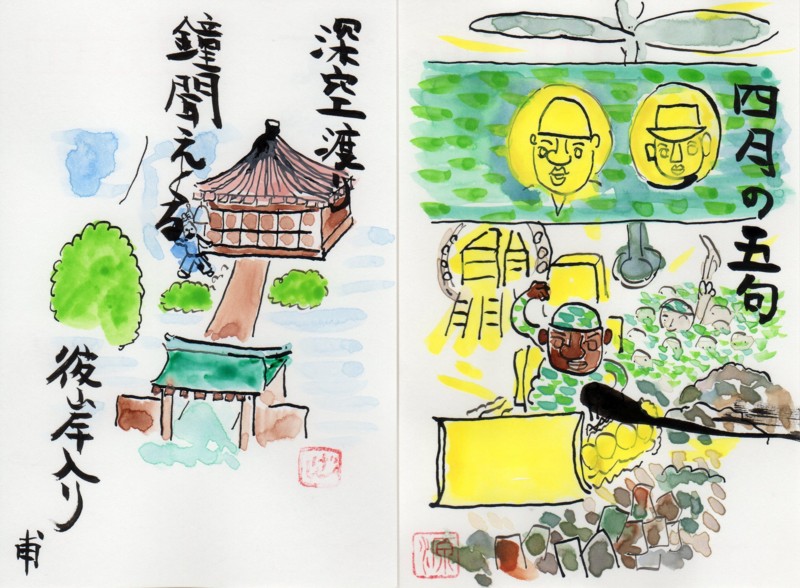 四月の五句
深空渡り
鐘聞えくる
彼岸入り
甫